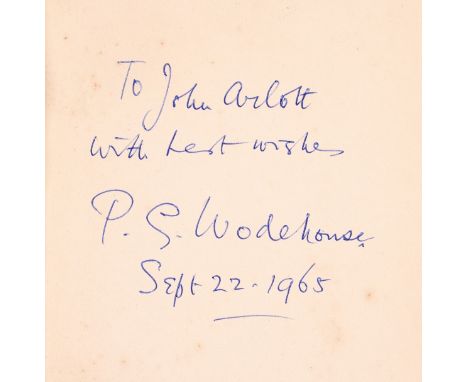 To John Arlott
with best wishes
P. G. Wodehouse.
Sept 22 - 1965